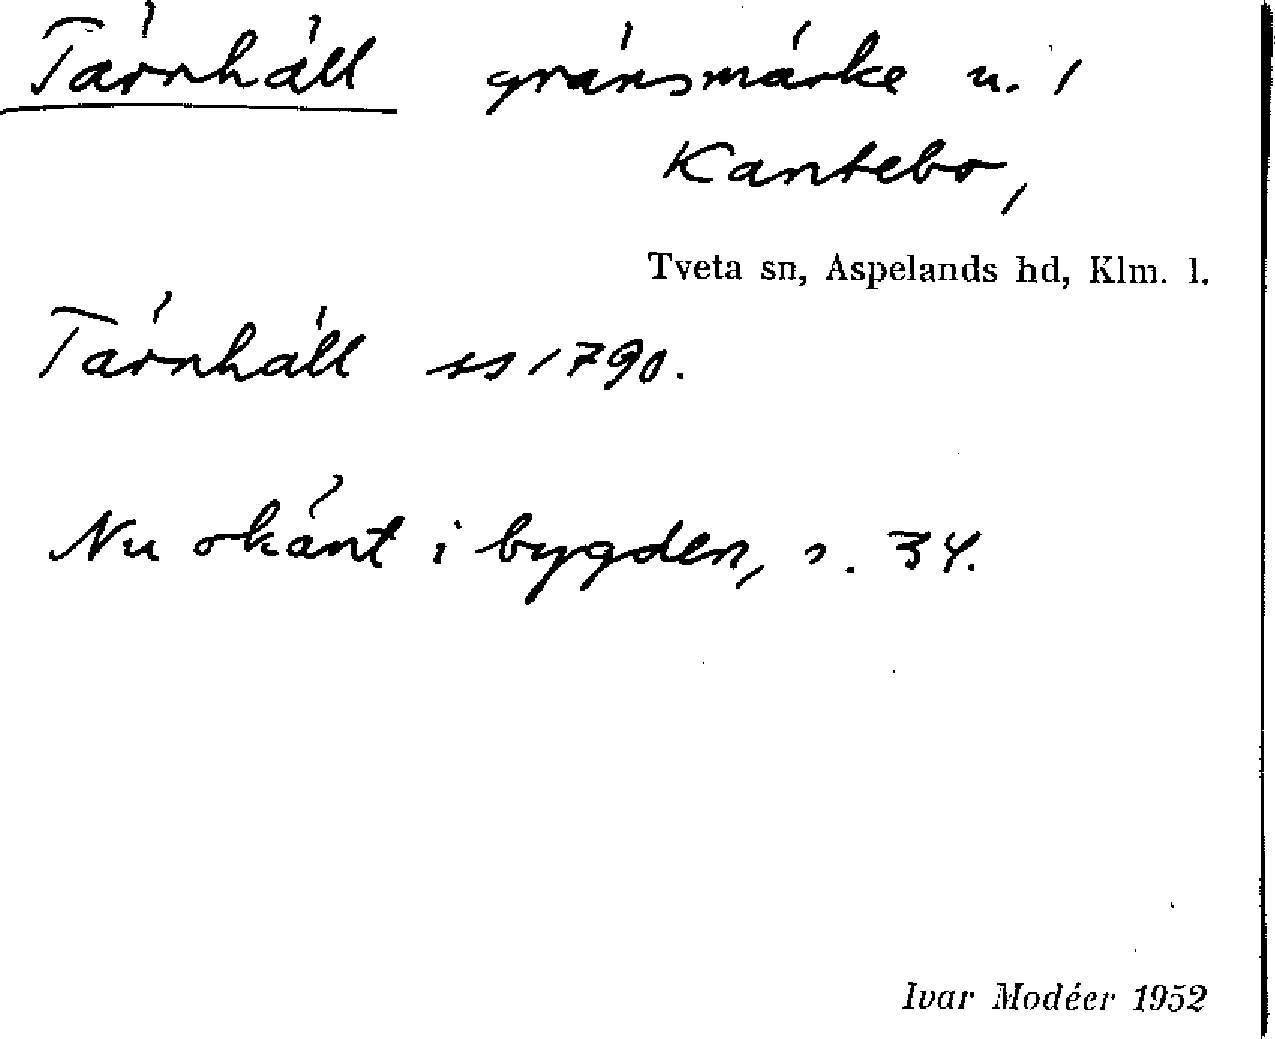 Tärnhäll gränsmärke u. 1
Kantebo,
Tveta sn, Aspelands hd, Klm. l.
Tärnhäll ss 1790.
Nu okänt i bygden, s. 34.
Ivar Modéer 1952